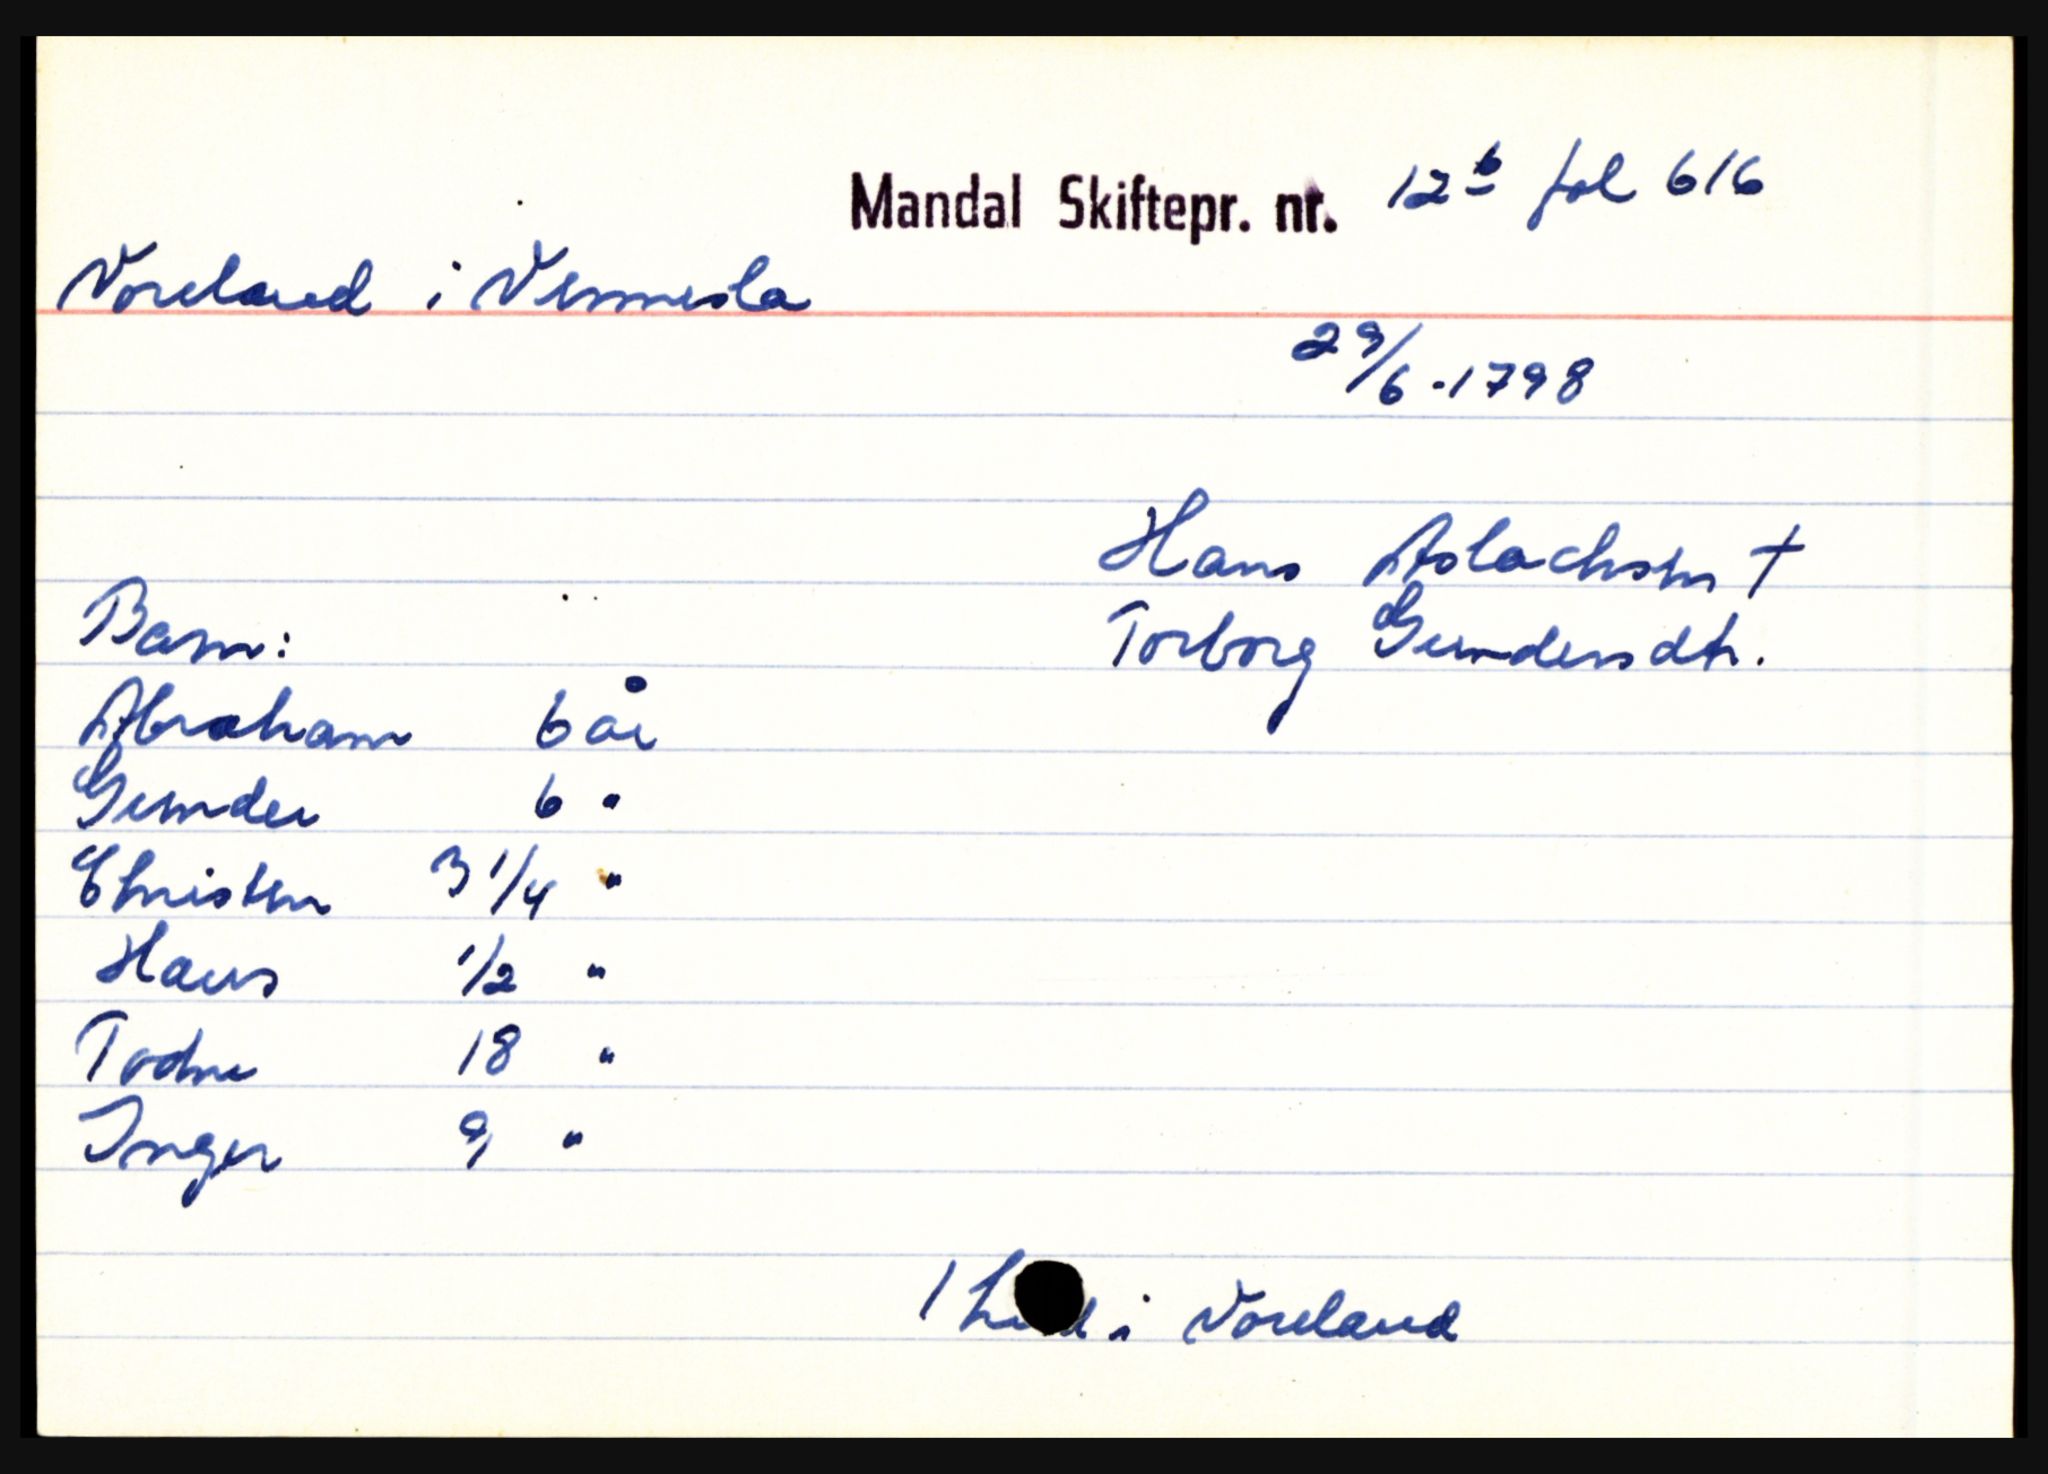 Mandal Skiftepr. nr. 12 b fol 616
Voreland i Vennesla
29/6-1798
Hans Aslachsen †
Torborg Gundersdtr.
Barn:
Abraham 6 år
Gunder 6 "
Christen 3 1/4 "
Hans 1/2 "
Todne 18 "
Inger 9 "
1 i Voreland